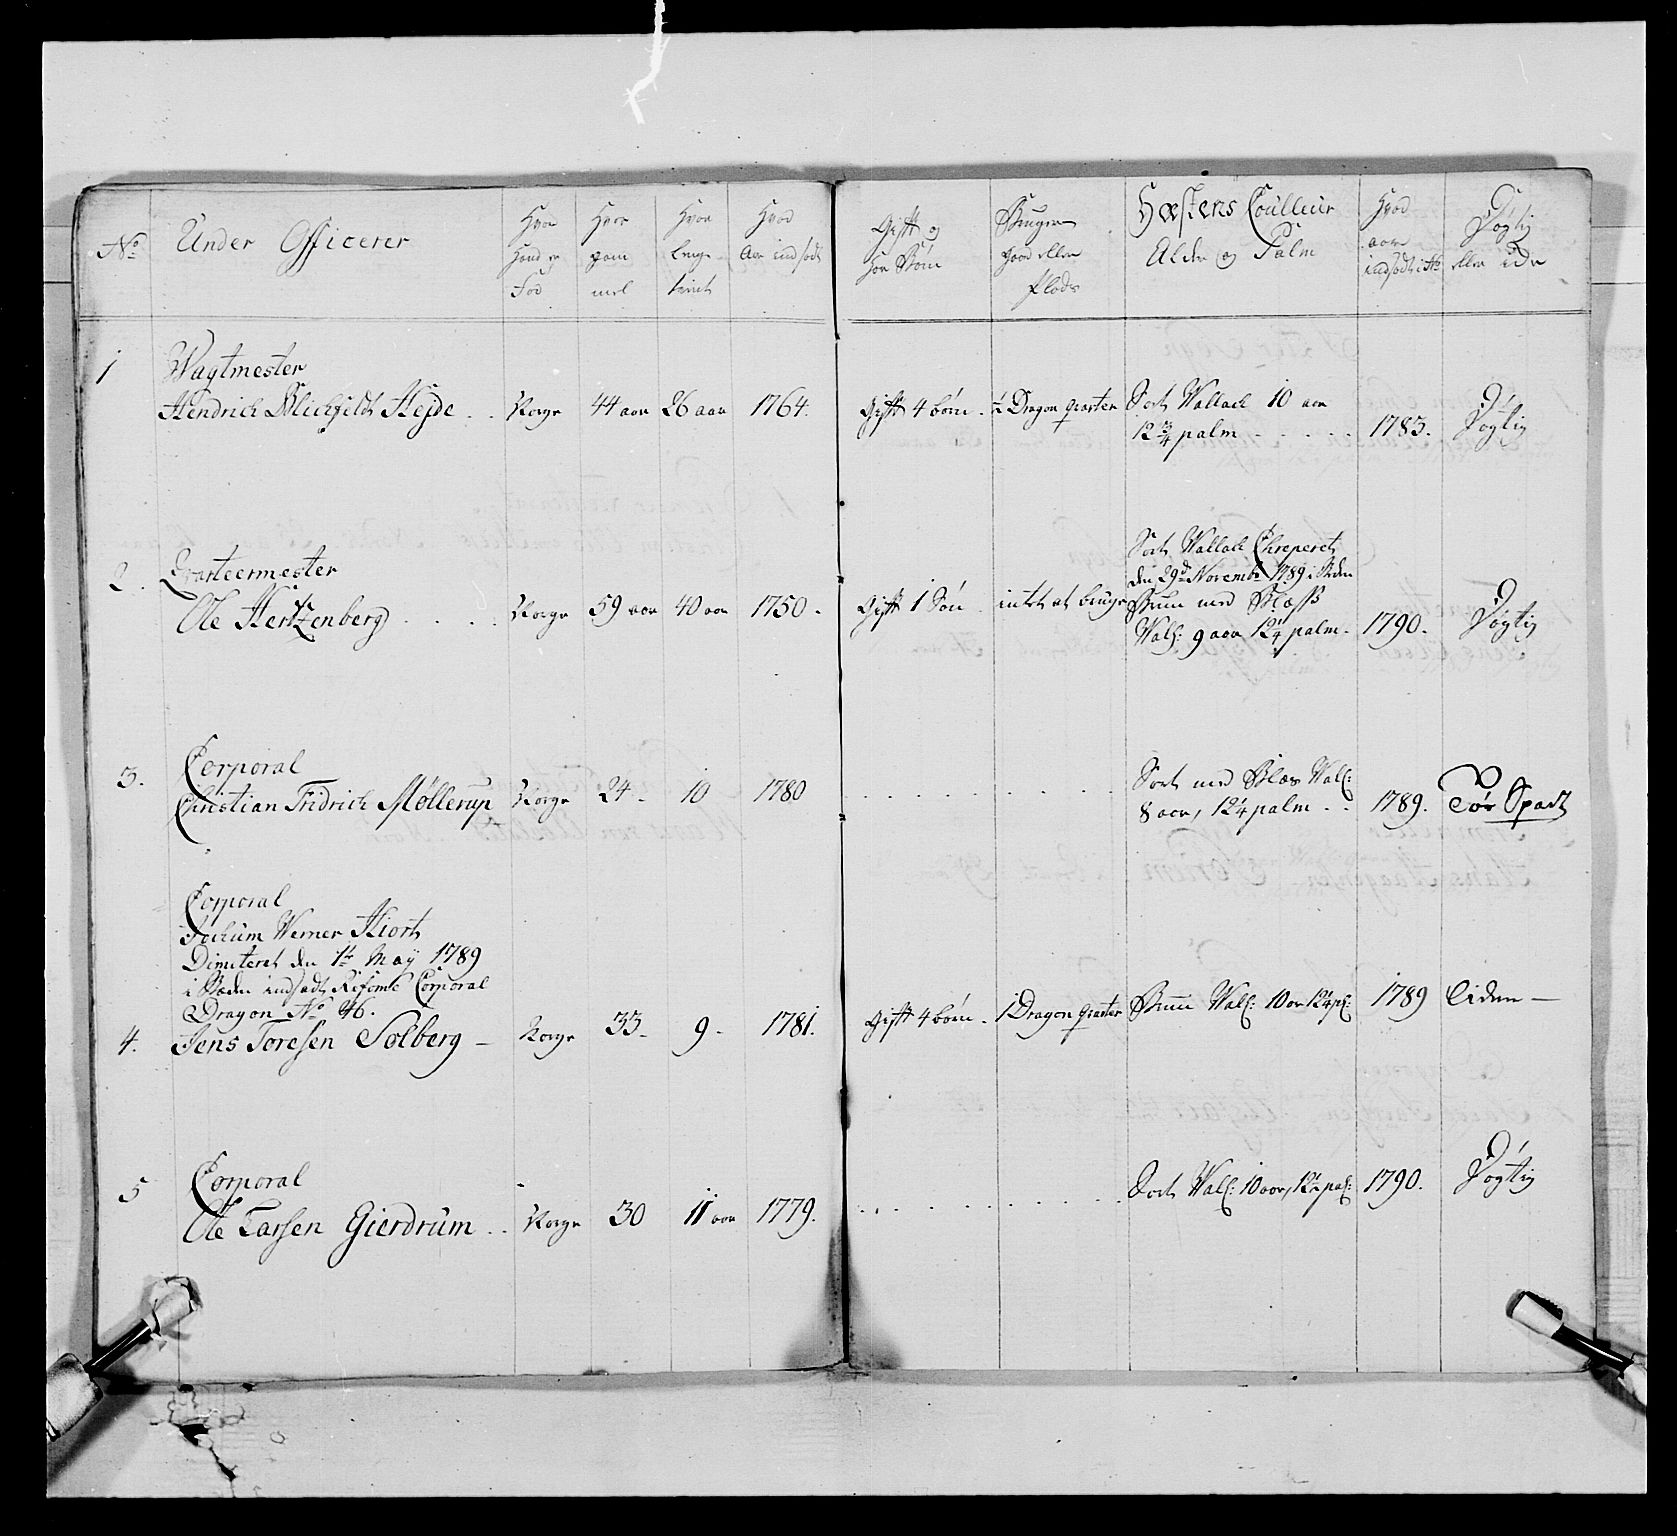 No. Under Officerer
Hvor Hand er Fød
Hvor gam mel
Hvor lenge tient
Hvad Aar indsadt
Gift og har Børn
Bruger Gaard eller Plads
Hæstens Coulleur Alder og Palm
Hvad aar indsadt i No
Døgtig eller ide
1 Wagtmester
Hendrich Blichfeldt Hejde . . Norge 44 aar 26 aar 1764. Gift 4 børn . ½ Dragon qvarteer Sort Wallack 10 aar
12 3/4 palm . . . . . 1783. Døgtig
2. Qvarteermester
Ole Hertzenberg . . . . Norge 59 aar 40 aar 1750. Gift 1 Søn intet at bruge
Sort Wallack Chreperet
den 29de Novembr 1789 i Steden
Bruun med Blæss
Wall: 9 aar 12¼ palm. 1790. Døgtig
3. Corporal
Christian Fridrich Møllerup Norge 24. 10 1780 . . . . . . . . . .
Sort med Blæs Wall:
8 aar, 12¼ palm . . 1789. Tør Spadt
Corporal
Jochum Werner Hiort
Dimiteret den 1te May 1789
i Steden indsadt Reformt Corporal
Dragon No 46.
4. Jens Toresen Solberg – Norge 33. 9. 1781. Gift 4 børn . 1 Dragon qvarteer Bruun Wall: 10 aar 12¼ pl: 1789 Liden –
5 Corporal
Ole Larsen Gierdrum . . Norge 30 11 aar 1779. . . . . . . . . . . Sort Wall: 10 aar, 12½ pal: 1790. Døgtig